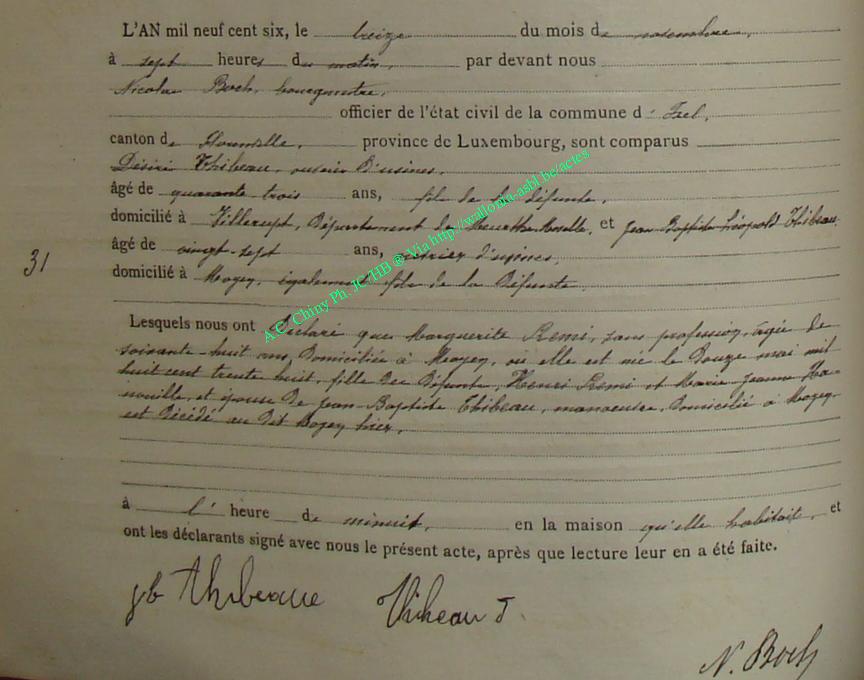 L'AN mil neuf cent six, le treize du mois de novembre,
à sept heures du matin, par devant nous
Nicolas Boch, bourgmestre,
officier de l'état civil de la commune d'Izel,
canton de Florenville, province de Luxembourg, sont comparus
Désiré Thibeau, ouvrier d'usines,
âgé de quarante trois ans, fils de la défunte,
domicilié à Villerupt, Département de Meurthe Moselle, et Jean-Baptiste Léopold Thibeau,
âgé de vingt-sept ans, ouvrier d'usines,
31
domicilié à Moyen, également fils de la défunte
Lesquels nous ont déclaré que Marguerite Remi, sans profession, âgée de
soixante-huit ans, domiciliée à Moyen, où elle est née le douze mai mil
huit cent trente huit, fille des défunts, Henri Remi et Marie Jeanne Ha-
nouille, et épouse de Jean-Baptiste Thibeau, manoeuvre, domicilié à Moyen,
est décédé au dit Moyen hier,
à l'heure de minuit, en la maison qu'elle habitait, et
ont les déclarants signé avec nous le présent acte, après que lecture leur en a été faite.
jb Thibeaue Thibeau D.
N. Boch
A.C. Chiny Ph. JC/HB ® Via http://wallonia-asbl.be/actes